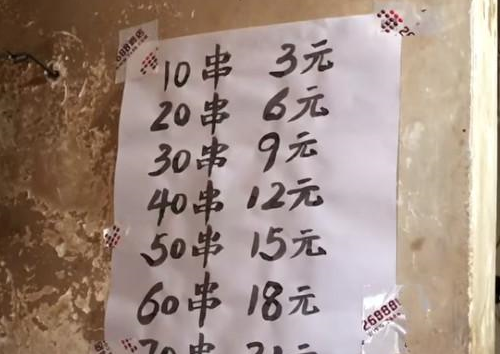 10串 3元
20串 6元
30串 9元
40串 12元
50串 15元
60串 18元
70串 21元
268881